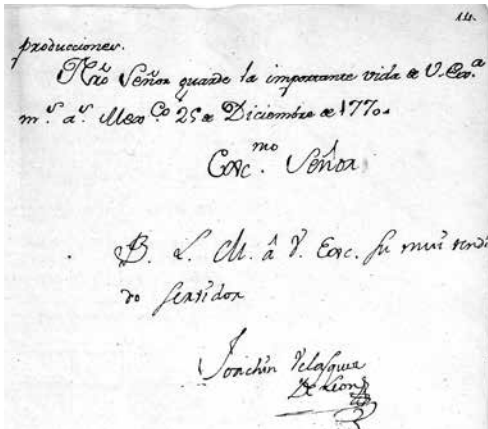 14.
producciones.
Nrõ Señor guarde la importante vida de V. Exc.ª
m.s a.s Mexico 25 de Diciembre de 1770.
Exc.mo Señor
B. L. M. â V. Exc. su mui rendi
do servidor
Joachin Velasques
De Leon